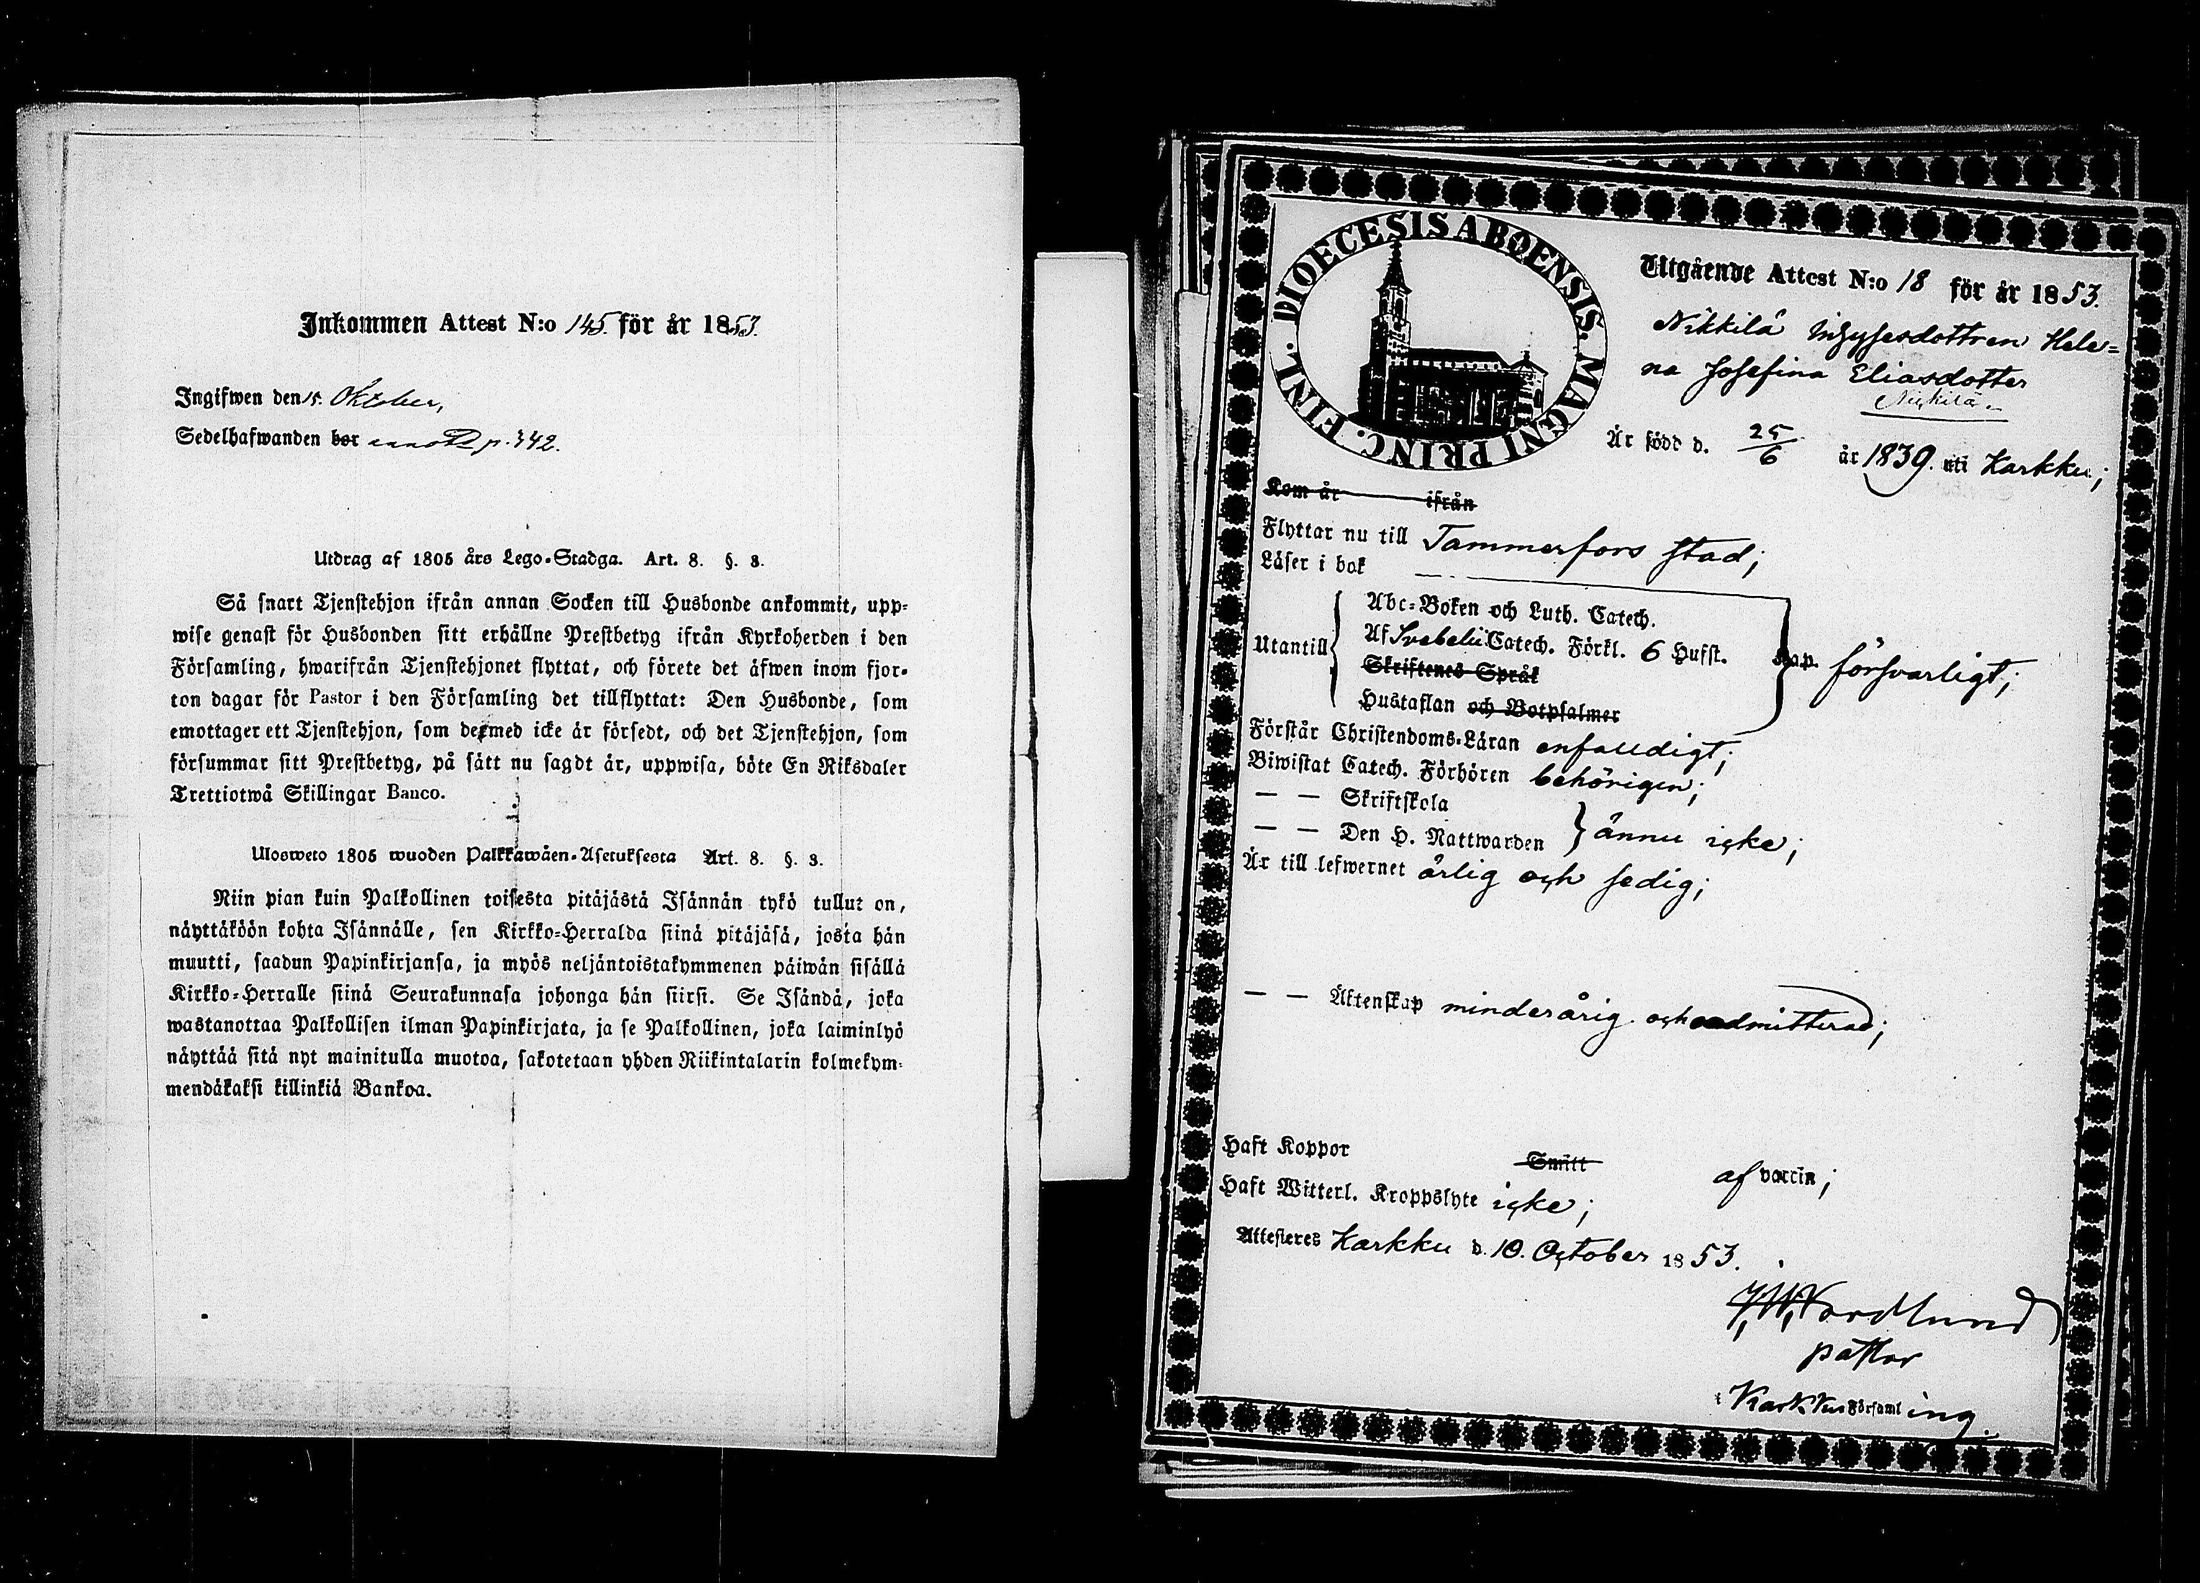 Inkommen Attest N:o 145. för år 1853.
Ingifwen den 15. Oktober,
Sedelhafwanden bor p. 342.
Utdrag af 1805 års Lego-Stadga. Art. 8. §. 3.
Så snart Tjenstehjon ifrån annan Socken till Husbonde ankommit, upp-
wise genast för Husbonden sitt erhållne Prestbetyg ifrån Kyrkoherden i den
Församling, hwarifrån Tjenstehjonet flyttat, och förete det äfwen inom fjor-
ton dagar för Pastor i den Församling det tillflyttat: Den Husbonde, som
emottager ett Tjenstehjon, som dermed icke är försedt, och det Tjenstehjon, som
försummar sitt Prestbetyg, på sätt nu sagdt är, uppwisa, böte En Riksdaler
Trettiotwå Skillingar Banco.
Ulosweto 1805 wuoden Palkkawäen-Asetuksesta Art. 8. §. 3.
Niin pian kuin Palkollinen toisesta pitäjästä Isännän tykö tullut on,
näyttäköön kohta Isännälle, sen Kirkko-Herralda siinä pitäjäsä, josta hän
muutti, saadun Papinkirjansa, ja myös neljäntoistakymmenen päiwän sisällä
Kirkko-Herralle siinä Seurakunnasa johonga hän siirsi. Se Isändä, joka
wastanottaa Palkollisen ilman Papinkirjata, ja se Palkollinen, joka laiminlyö
näyttää sitä nyt mainitulla muotoa, sakotetaan yhden Riikintalarin kolmekym-
mendäkaksi killinkiä Bankoa.
DIOECESIS ABOENSIS. MAGNI PRINC. FINL.
Utgående Attest N:o 18 för år 1853.
Nikkilä Inhysesdottren Hele=
na Josefina Eliasdotter
Nikkilä
Är född d. 25/6 år 1839. uti Karkku;
Kom år ifrån
Flyttar nu till Tammerfors stad;
Läser i bok
Utantill
Abc-Boken och Luth. Catech.
Af Svebelii Catech. Förkl. 6 Hufst. Kap. försvarligt;
Skriftenes Språk
Hustaflan och Botpsalmer
Förstår Christendoms-Läran enfaldigt;
Biwistat Catech. Förhören behörigen;
— — Skriftskola
— — Den H. Nattwarden ännu icke;
Är till lefwernet ärlig och sedig;
— — Äktenskap minderårig och oadmitterad;
Haft Koppor Smitt af vaccin;
Haft Witterl. Kroppslyte icke;
Attesteres Karkku d. 10. October 1853.
J. W. Nordlund
pastor
i Karkku Församling.